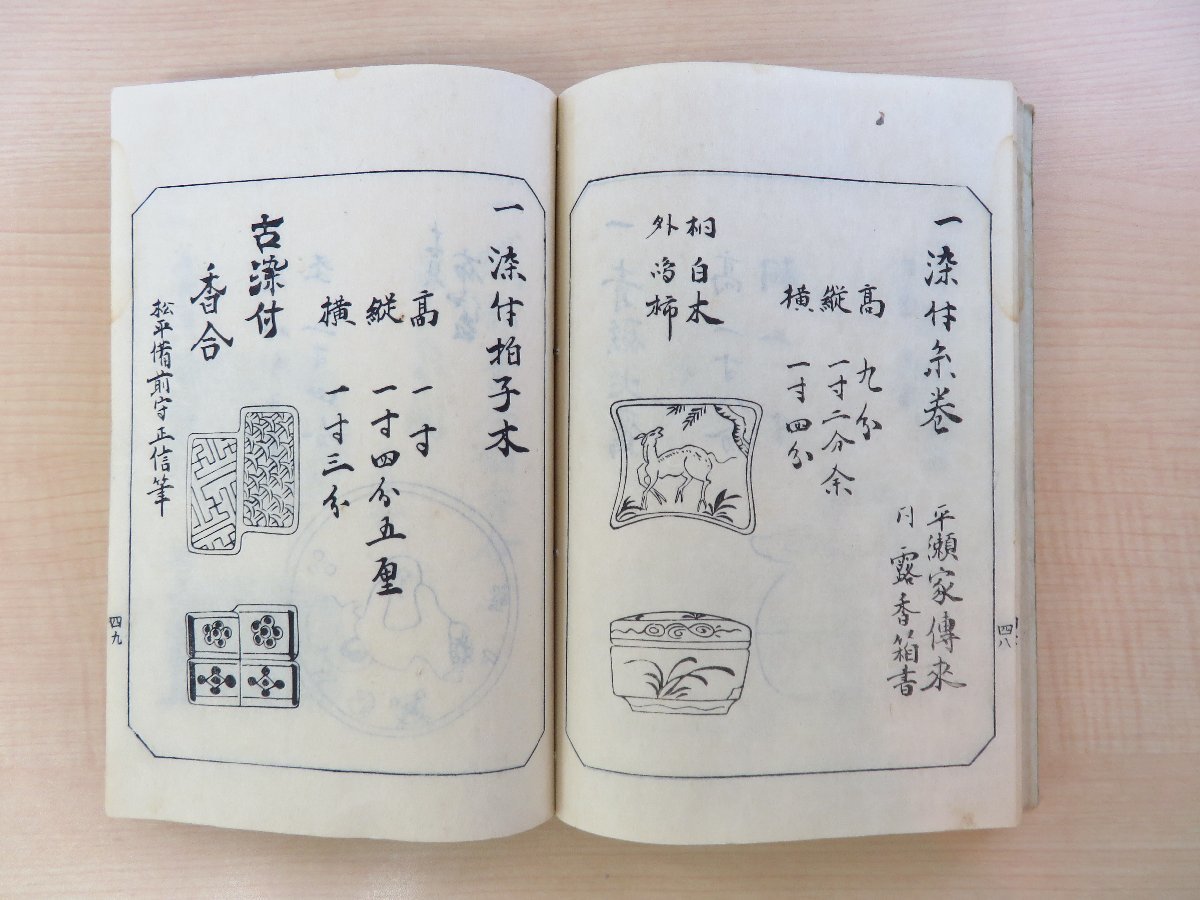 一 染付糸巻
平瀬家傳来
同 露香箱書
高 九分
縦 一寸二分余
横 一寸四分
桐白木
外嶋柿
四八
一 染付拍子木
高 一寸
縦 一寸四分五厘
横 一寸三分
古染付
香合
松平備前守正信筆
四九